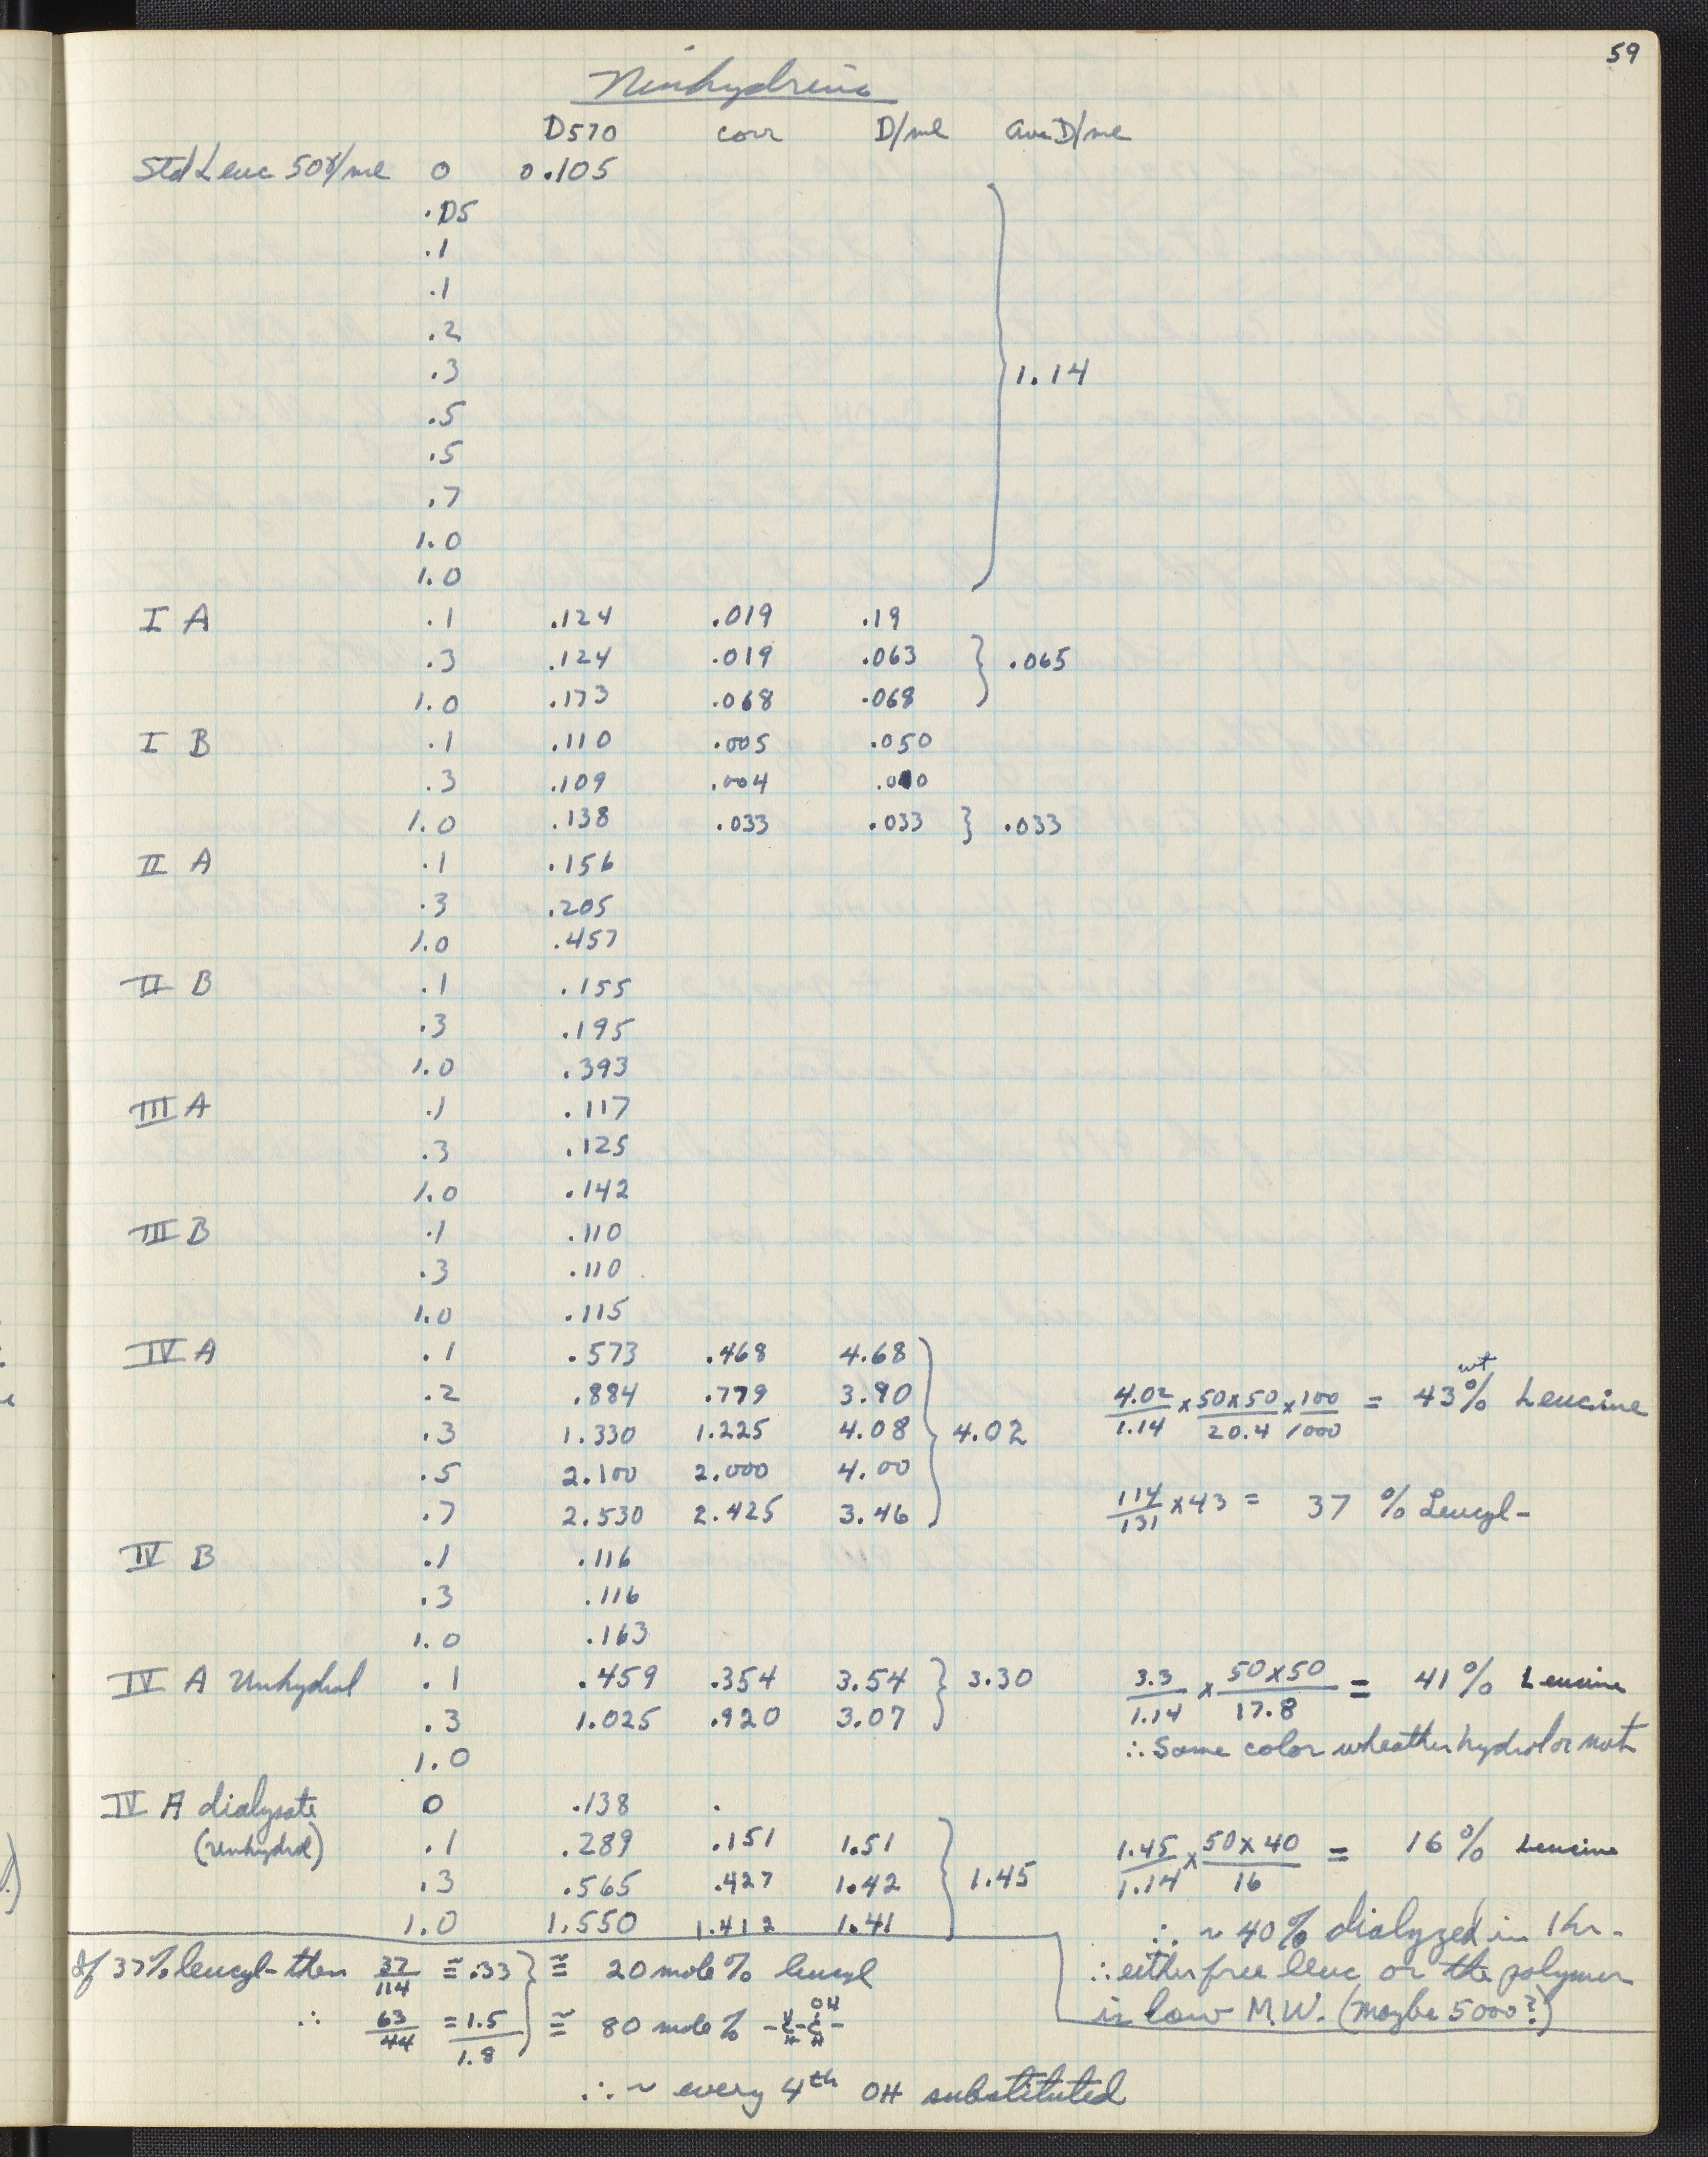 59
Ninhydrin
D570 corr D/ml ave D/ml
Std Leuc 50γ/ml 0 0.105
.05
.1
.1
.2
.3 1.14
.5
.5
.7
1.0
1.0
I A .1 .124 .019 .19
.3 .124 .019 .063 } .065
1.0 .173 .068 .068
I B .1 .110 .005 .050
.3 .109 .004
1.0 .138 .033 .033 } .033
II A .1 .156
.3 .205
1.0 .457
II B .1 .155
.3 .195
1.0 .393
III A .1 .117
.3 .125
1.0 .142
III B .1 .110
.3 .110
1.0 .115
IV A .1 .573 .468 4.68
.2 .884 .779 3.90 4.02/1.14 x 50x50/20.4 x 100/1000 = 43 wt % Leucine
.3 1.330 1.225 4.08 } 4.02
.5 2.100 2.000 4.00
.7 2.530 2.425 3.46 114/131 x 43 = 37 % Leucyl-
IV B .1 .116
.3 .116
1.0 .163
IV A Unhydrol .1 .459 .354 3.54 } 3.30 3.3/1.14 x 50x50/17.8 = 41% Leucine
.3 1.025 .920 3.07
1.0 ∴ Same color wheather hydrol or not
IV A dialysate 0 .138 .
(unhydrol) .1 .289 .151 1.51 1.45/1.14 x 50x40/16 = 16% Leucine
.3 .565 .427 1.42 } 1.45
1.0 1.550 1.412 1.41
∴ ~ 40% dialyzed in 1 hr.
∴ either free leuc or the polymer
is low M.W. (maybe 5000?)
If 37% leucyl- then 37/114 ≅ .33 } ≅ 20 mole % leucyl
∴ 63/44 = 1.5/1.8 ≅ 80 mole % -C-C- H OH H H
∴ ~ every 4th OH substituted